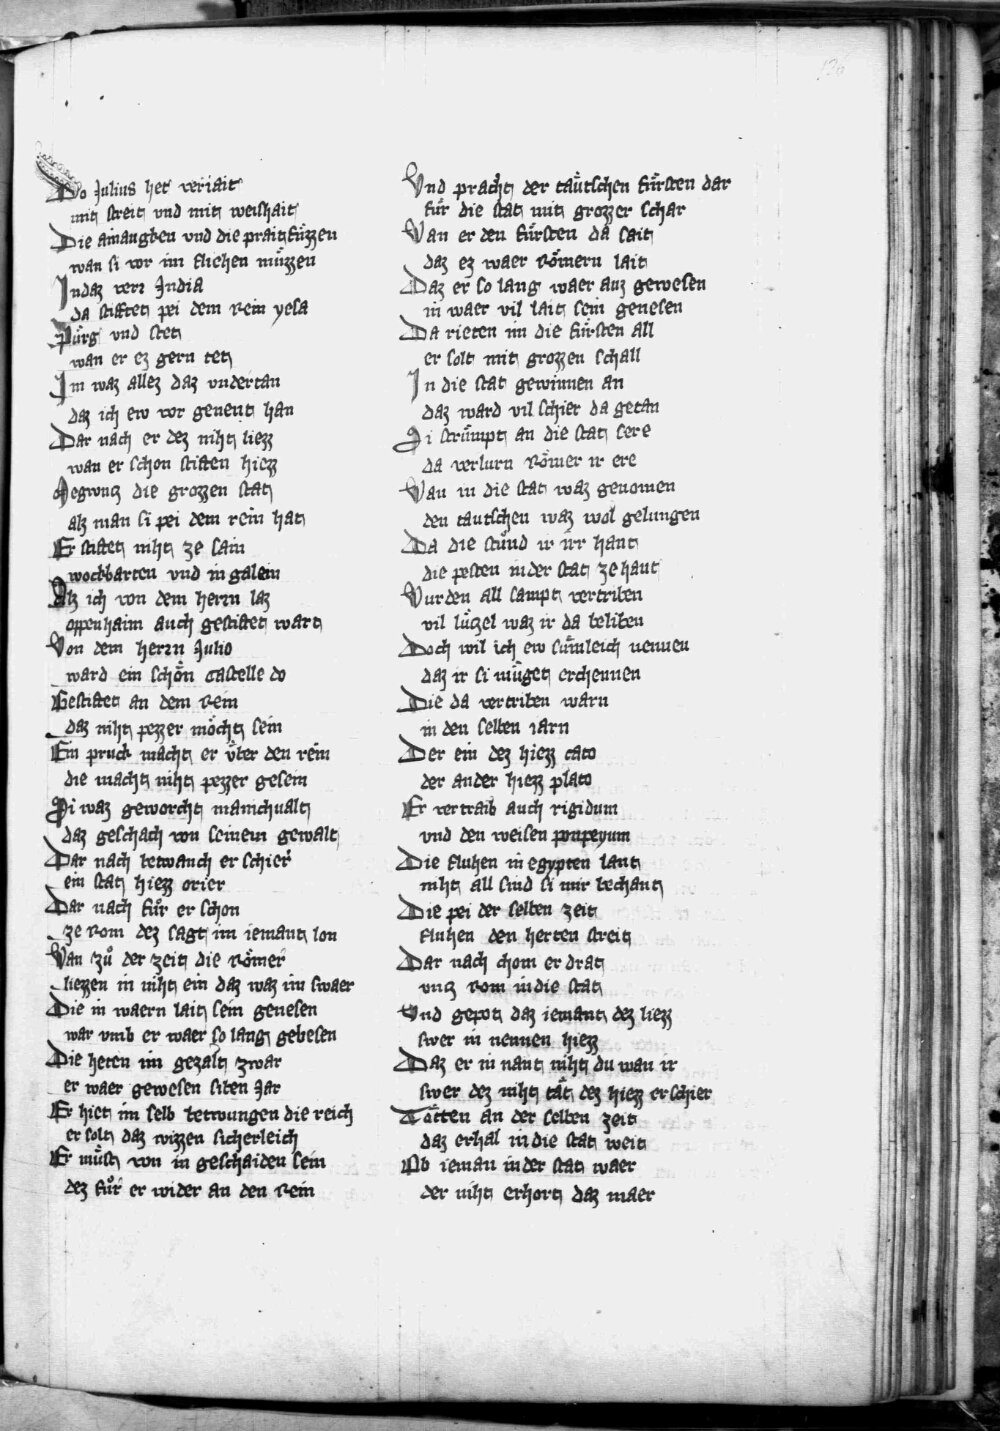 126
Do Julius het veriait
mit streit vnd mit weishait
Die amaugben vnd die praitfuͤzzen
wan si vor im fliehen muͤzzen
Indaz verr India
da stifftet pei dem Rein yesa
Puͤrg vnd stet
wan er ez gern tet
Im waz allez daz vndertan
daz ich ew vor genent han
Dar nach er dez niht liezz
wan er schon stiften hiezz
die grozzen stat
alz man si pei dem rein hat
Er stiftet niht ze sain
wockbarten vnd ingalein
Alz ich von dem herrn laz
oppenhaim auch gestiftet wart
Von dem herrn Julio
ward ein schoͤn castelle do
Gestiftet an dem Rein
daz niht pezzer moͤcht sein
Ein pruck macht er uͤber den rein
die macht niht pezzer gesein
Si waz geworcht manichualt
daz geschach von seinem gewalt
Dar nach betwanch er schier
ein stat hiezz orier
Dar nach fuͦr er schon
ze Rom dez sagt im iemant lon
Wan zuͦ der zeit die Roͤmer
liezzen in niht ein daz waz im swaer
Die in waern lait sein genesen
war vmb er waer so lang gebesen
Die heten im gezalt zwar
er waer gewesen siben Jar
Er hiet im selb betwungen die reich
er solt daz wizzen sicherleich
Er muͤst von in geschaiden sein
dez fuͦr er wider an den Rein
Vnd pracht der taͤutschen fuͤrsten dar
fuͤr die stat mit grozzer schar
Wan er den fuͤrsten da sait
daz ez waer Roͤmern lait
Daz er so lang waer auz gewesen
in waer vil lait sein genesen
Da rieten im die fuͤrsten all
er solt mit grozzen schall
In die stat gewinnen an
daz ward vil schier da getan
Si struͤmpt an die stat sere
da verlurn Roͤmer ir ere
Wan in die stat waz genomen
den tautschen waz wol gelungen
Da die stuͦnd ir irr hant
die pesten inder stat zehant
Wurden all sampt vertriben
vil luͤczel waz ir da beliben
Doch wil ich ew suͤmleich nennen
daz ir si muͤget erchennen
Die da vertriben warn
in den selben iarn
Der ein dez hiezz cato
der ander hiezz plato
Er vertraib auch rigidum
vnd den weisen pompeyum
Die fluhen in egypten lant
niht all sind si mir bechant
Die pei der selben zeit
fluhen den herten streit
Dar nach chom er drat
vncz Rom in die stat
Vnd gepot daz iemant dez liezz
swer in nennen hiezz
Daz er in nant niht du wan ir
swer dez niht taͤt dez hiezz er schier
Toͤtten an der selben zeit
daz erhal in die stat weit
Ob ieman inder stat waer
der niht erhort daz maer